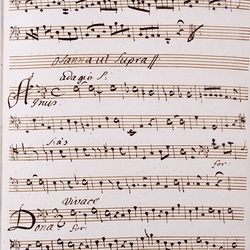 Osanna ut Supra
Adagio S.
Agnus.
for.
Vivace
Dona
for.